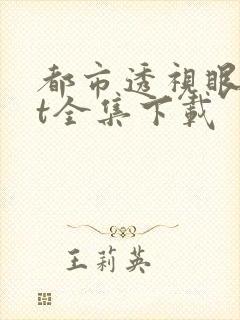 都市透視眼
t全集下載
王莉英